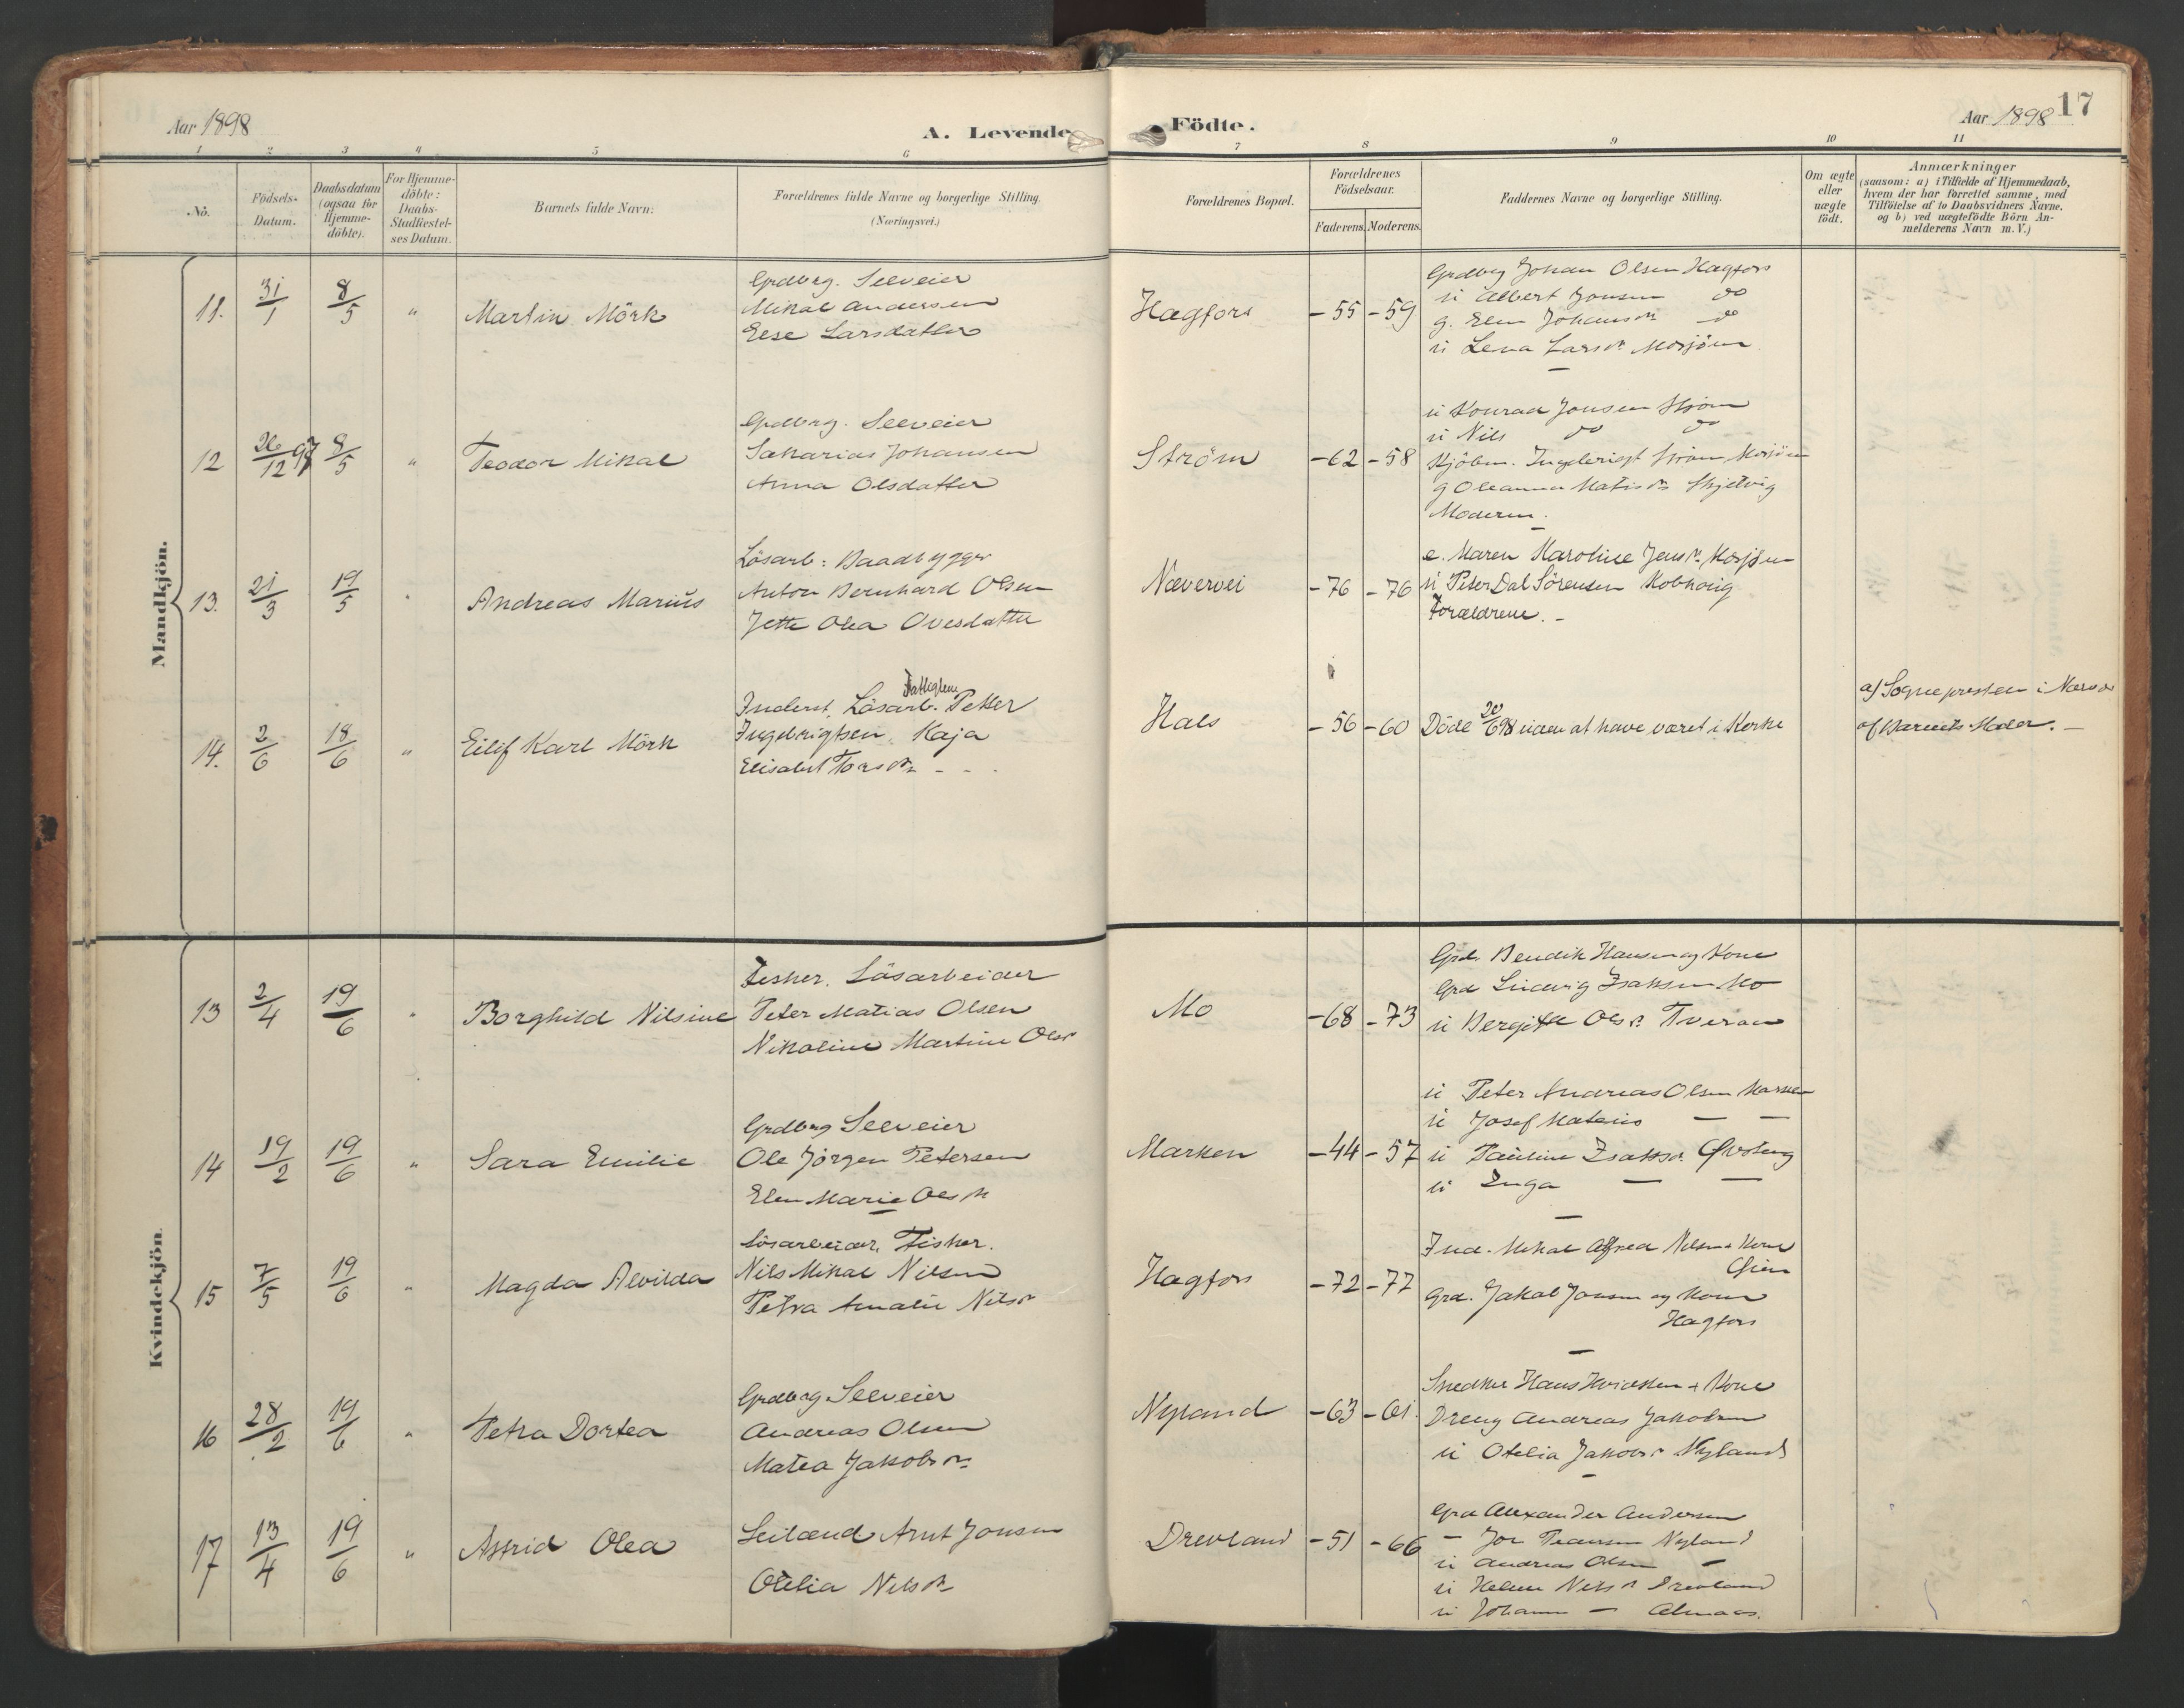 Aar 1898
A. Levende
Födte.
Aar 1898
17
1 2 3 4 5 6 7 8 9 10 11
No.
Födsels-Datum.
Daabsdatum (ogsaa for Hjemme-döbte).
For Hjemme-döbte: Daabs-Stadfæstel-ses Datum.
Barnets fulde Navn:
Forældrenes fulde Navne og borgerlige Stilling.
(Næringsvei.)
Forældrenes Bopæl.
Forældrenes Födselsaar.
Faderens. Moderens.
Faddernes Navne og borgerlige Stilling.
Om ægte eller uægte födt.
Anmærkninger
(saasom: a) i Tilfælde af Hjemmedaab,
hvem der har forrettet samme, med
Tilföielse af to Daabsvidners Navne.
og b) ved uægtefödte Börn An-
melderens Navn m.V.)
Mandkjön.
11. 31/1 8/5 " Martin Mörk
Grdbrg. Selveier
Mikal Andersen
Else Larsdatter
Hagfors -55 -59
Grdbrg Johan Olsen Hagfors
u Albert Jonsen do
g. Elen Johans dr do
u Lena Lars dr Mosjöen
12 26/12 97 8/5 " Teodor Mikal
Grdbrg. Selveier
Sakarias Johansen
Anna Olsdatter
Ström -62 -58
u Konrad Jonsen Ström
u Nils do do
Kjöbm. Ingebrigt Ström Mosjöen
g Oleanna Matis dr
Moderen.
13. 21/3 19/5 " Andreas Marius
Lösarb: Baadbygger
Anton Bernhard Olsen
Jette Olea Ovesdatter
Nævervei -76 -76
e. Maren Karoline Jens dr. Mosjöen
u Peter Dal Sörensen
Forældrene. -
14. 2/6 18/6 " Eilif Karl Mörk
Fattiglem
Inderst, Lösarb. Petter
Ingebrigtsen, Kaja
Elisabet Tors dr - - -
Hals -56 -60
Döde 20/6 98 uden at have været i Kirke
af Sognepresten i
af Barnets Moder. -
Kvindekjön.
13 2/4 19/6 " Borghild Nilsine
Fisker. Lösarbeider
Peter Matias Olsen
Nikoline Martine Ols dr
Mo -68 -73
Grd. Bendik Hansen og Kone
Grd Ludvig Isaksen Mo
u Bergitte Ols dr. Tveraa
14 19/2 19/6 " Sara Emilie
Grdbrg Selveier
Ole Jörgen Petersen
Elen Marie Ols dr
Marken -44 -57
u Peter Andreas Olsen Marken
u Josef Mateus — —
u Pauline Isaks dr.
u Inga — —
15 7/5 19/6 " Magda Alvilda
Lösarbeider, Fisker.
Nils Mikal Nilsen
Petra Amalie Nils dr
Hagfors -72 -77
Ind. Mikal Alfred Nilsen + Kone
Grd. Jakob Jonsen og Kone
Hagfors
16 28/2 19/6 " Petra Dortea
Grdbrg Selveier
Andreas Olsen
Matea Jakobs dr
Nyland -63 -61.
Snedker Hans + Kone
Dreng Andreas Jakobsen
u Otelia Jakobs dr Nyland
17 13/4 19/6 " Astrid Olea
Leilænd Arnt Jonsen
Otelia Nils dr
Drevland -51 -66
Grd Alexander Andersen
— Jon Pedersen Nyland
u Andreas Olsen —
u Helene Nils dr Drevland
u Johanna — Almaas.